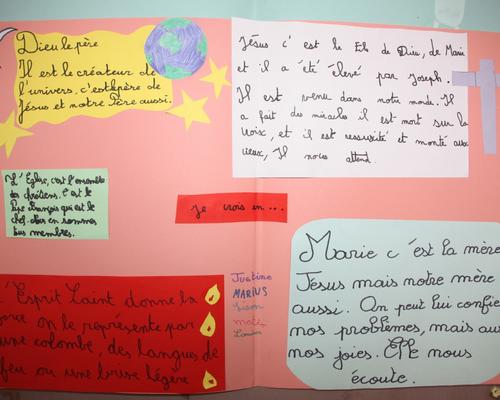 Dieu le père
Il est le créateur de
l'univers, c'est père de
Jésus et notre Père aussi.
Jésus c'est le Fils de Dieu, de Marie
et il a été élevé par Joseph.
Il est venu dans notre monde. Il
a fait des miracles il est mort sur la
croix, et il est ressuscité et monté aux
cieux, Il nous attend
L'Eglise, c'est l'ensemble
des chrétiens. C'est le
Pape François qui est le
chef. Nous en sommes
tous membres.
Je crois en...
L'Esprit Saint donne la
force on le représente par
une colombe, des langues de
feu ou une brise légère
Justine
MARIUS
Lison
Louise
Marie c'est la mère
Jésus mais notre mère
aussi. On peut lui confier
nos problèmes, mais aussi
nos joies. Elle nous
écoute.